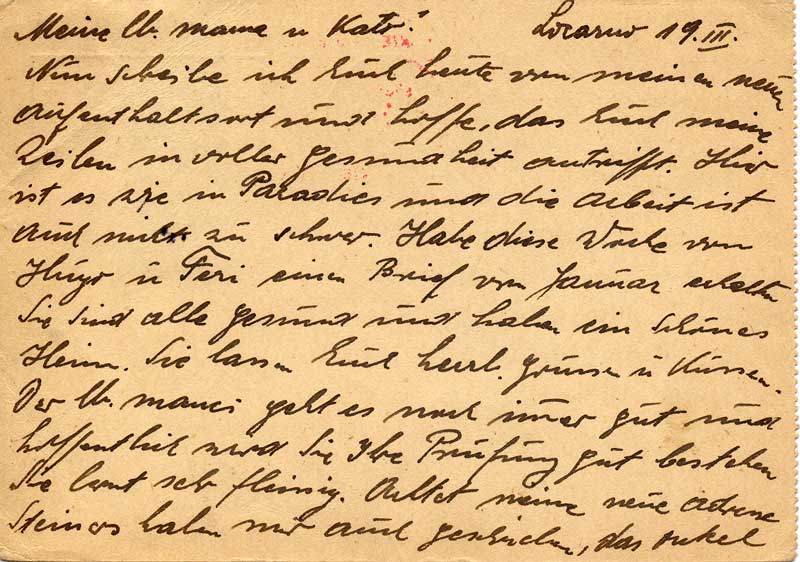 Meine lb. mama u Kato! Locarno 19.III.
Nun scheibe ich Euch heute von meinen neuen
Aufenthaltsort und hoffe, das Euch meine
Zeilen in voller gesundheit antrifft. Hier
ist es wie in Paradies und die Arbeit ist
auch nicht zu schwer. Habe diese Woche von
Hugo u Feri einen Brief vom Januar erhalten
Sie sind alle gesund und haben ein schönes
Heim. Sie lassen Euch herzl. grüssen u Küssen.
Der lb. manci geht es noch imer gut und
hoffentlich wird Sie Ihre Prüfung gut bestehen
Sie lernt sehr fleissig. Achtet meine neue adresse
Steiners haben mir auch geschrieben, das onkel